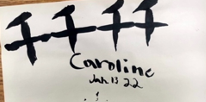 Caroline
Jan. 13 22